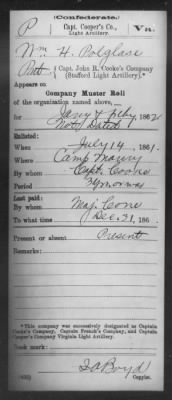 (Confederate.)
P Capt. Cooper's Co., Va.
Light Artillery.*
Wm H. Polglase
Pvt, Capt. John R. Cooke's Company
(Stafford Light Artillery).*
Appears on
Company Muster Roll
of the organization named above,
for Jany & Feby 1862
Not Dated
Enlisted:
When July 14, 1861.
Where Camp Maury
By whom Capt. Cooke
Period
Last paid:
By whom Maj. Cone
To what time Dec. 31, 186
Present or absent Present
Remarks:
*This company was successively designated as Captain
Cooke's Company, Captain French's Company, and Captain
Cooper's Company Virginia Light Artillery.
Book mark:
Boyd
Copyist.